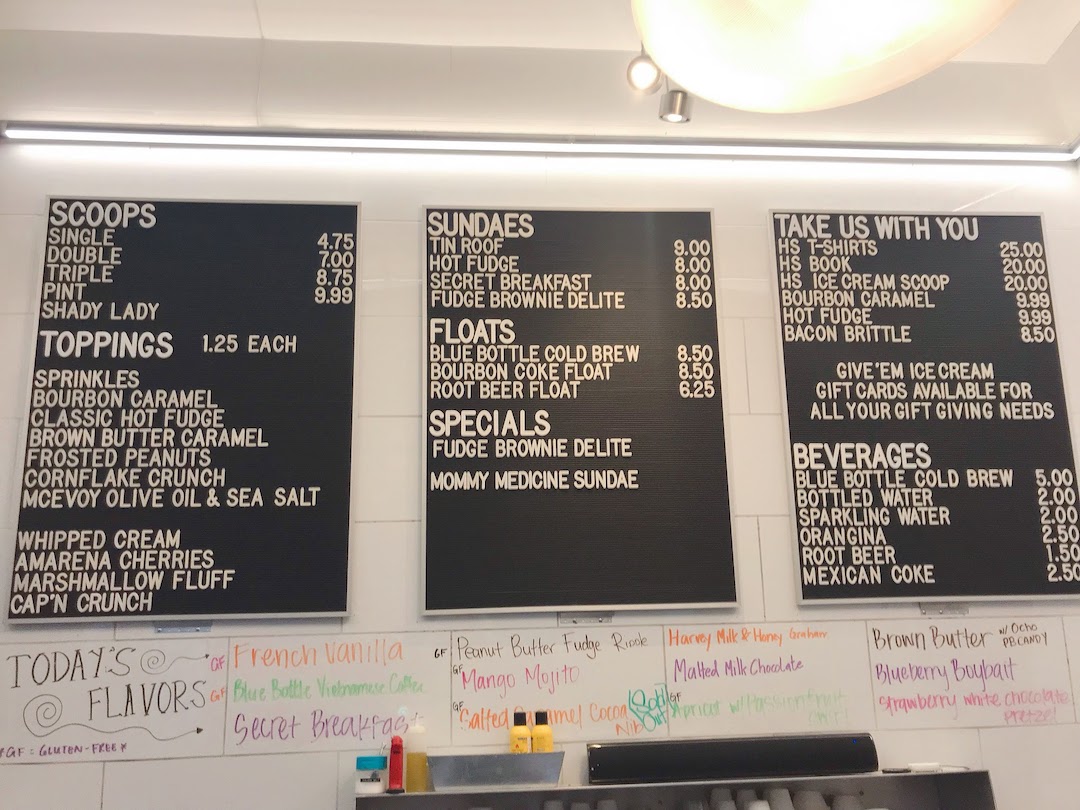 SCOOPS
SINGLE 4.75
DOUBLE 7.00
TRIPLE 8.75
PINT 9.99
SHADY LADY
TOPPINGS 1.25 EACH
SPRINKLES
BOURBON CARAMEL
CLASSIC HOT FUDGE
BROWN BUTTER CARAMEL
FROSTED PEANUTS
CORNFLAKE CRUNCH
MCEVOY OLIVE OIL & SEA SALT
WHIPPED CREAM
AMARENA CHERRIES
MARSHMALLOW FLUFF
CAP'N CRUNCH
SUNDAES
TIN ROOF 9.00
HOT FUDGE 8.00
SECRET BREAKFAST 8.00
FUDGE BROWNIE DELITE 8.50
FLOATS
BLUE BOTTLE COLD BREW 8.50
BOURBON COKE FLOAT 8.50
ROOT BEER FLOAT 6.25
SPECIALS
FUDGE BROWNIE DELITE
MOMMY MEDICINE SUNDAE
TAKE US WITH YOU
HS T-SHIRTS 25.00
HS BOOK 20.00
HS ICE CREAM SCOOP 20.00
BOURBON CARAMEL 9.99
HOT FUDGE 9.99
BACON BRITTLE 8.50
GIVE'EM ICE CREAM
GIFT CARDS AVAILABLE FOR
ALL YOUR GIFT GIVING NEEDS
BEVERAGES
BLUE BOTTLE COLD BREW 5.00
BOTTLED WATER 2.00
SPARKLING WATER 2.00
ORANGINA 2.50
ROOT BEER 1.50
MEXICAN COKE 2.50
TODAY'S
FLAVORS
*GF = GLUTEN-FREE*
GF French Vanilla
GF Blue Bottle Vietnamese Coffee
Secret Breakfast
GF Peanut Butter Fudge
GF Mango Mojito
GF Salted Caramel Cocoa
Nib
Sold
Out
Harvey Milk & Honey Graham
Malted Milk Chocolate
GF Apricot w/Passionfruit
Brown Butter w/ Ocho
PB CANDY
Blueberry Boybait
Strawberry white chocolate
Pretzel